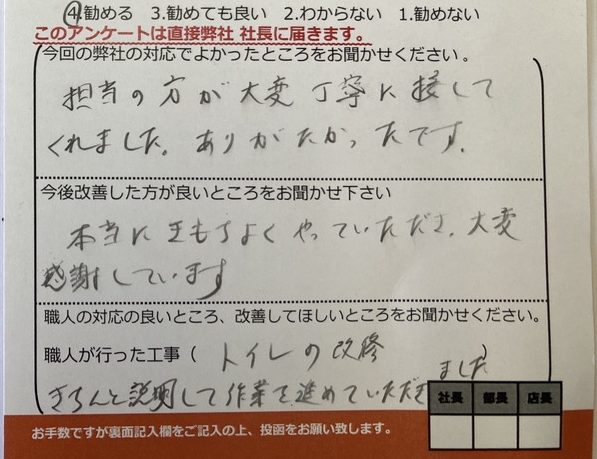 4.勧める 3.勧めても良い 2.わからない 1.勧めない
このアンケートは直接弊社 社長に届きます。
今回の弊社の対応でよかったところをお聞かせください。
担当の方が大変丁寧に接して
くれました。ありがたかったです。
今後改善した方が良いところをお聞かせ下さい
本当にきもちよくやっていただき、大変
感謝しています
職人の対応の良いところ、改善してほしいところをお聞かせください。
職人が行った工事（トイレの改修）
きちんと説明して作業を進めていただき
ました
社長 部長 店長
お手数ですが裏面記入欄をご記入の上、投函をお願い致します。